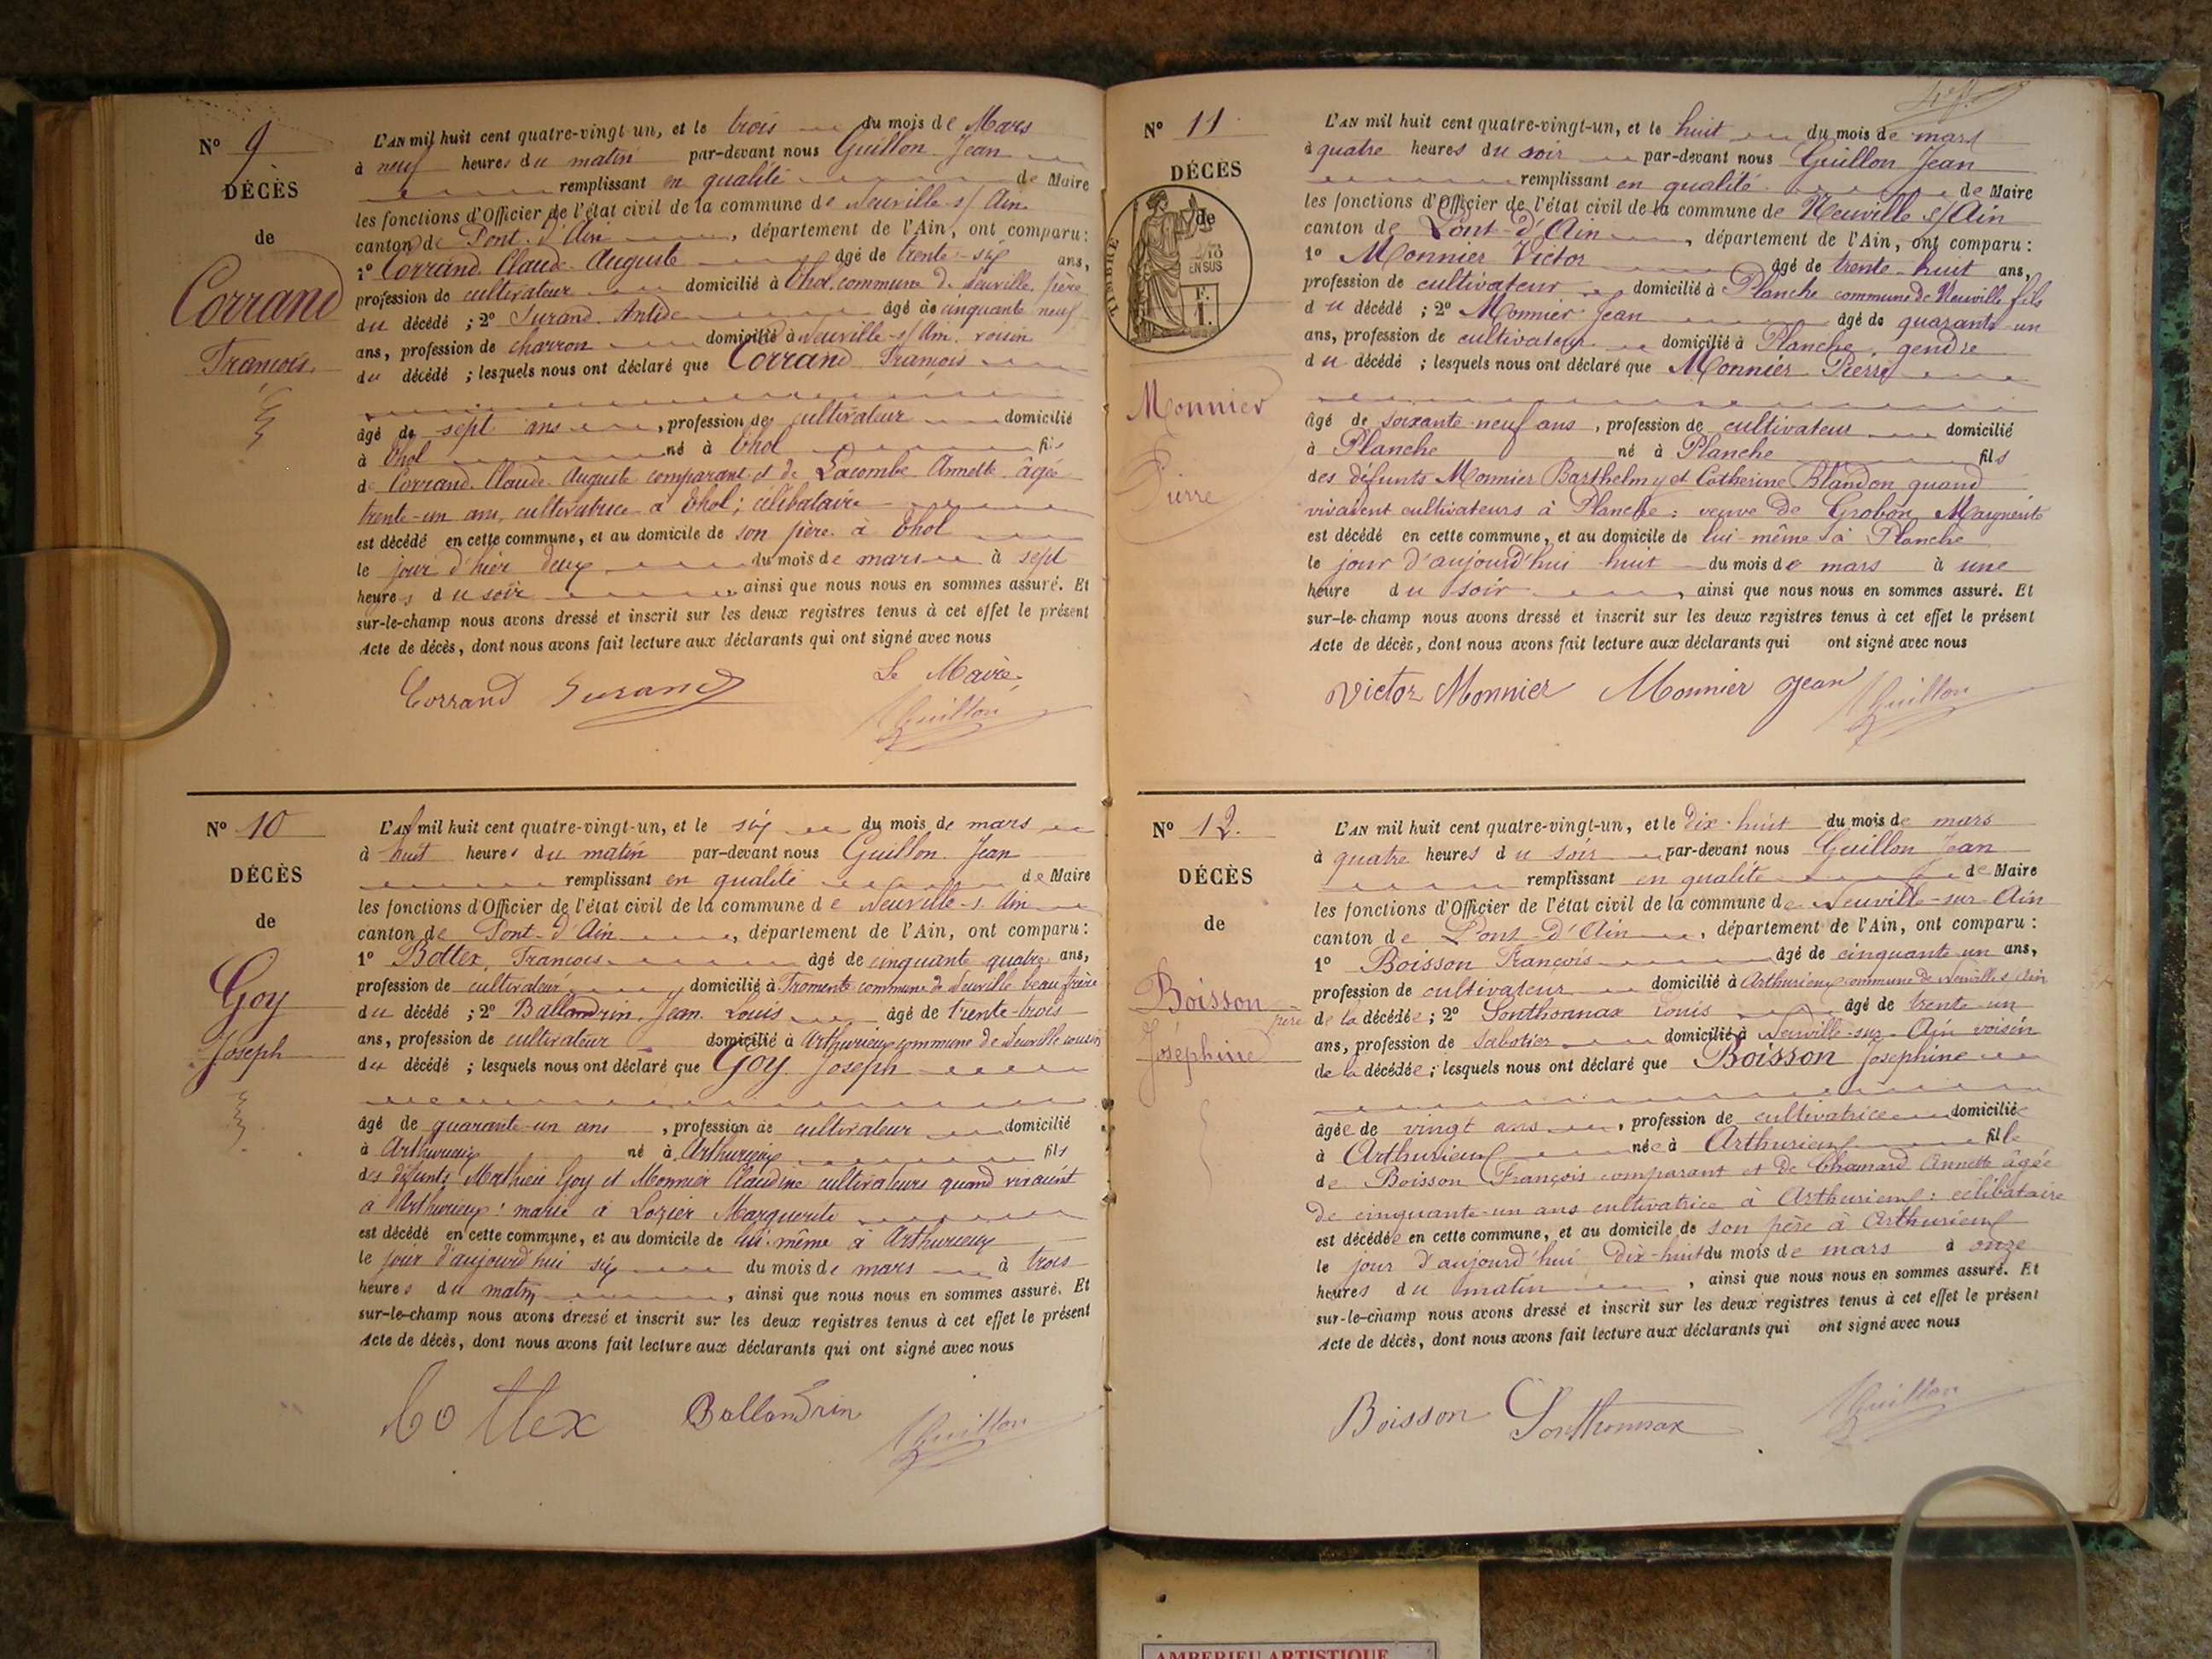 Nº 9
DÉCÈS
de
Corrand
François
L'AN mil huit cent quatre-vingt-un, et le trois du mois de Mars
à neuf heures du matin par-devant nous Guillon Jean
remplissant en qualité de Maire
les fonctions d'Officier de l'état civil de la commune de Neuville s/ Ain
canton de Pont-d'Ain, département de l'Ain, ont comparu:
1º Corrand Claude Auguste âgé de trente-six ans,
profession de cultivateur domicilié à Thol commune de Neuville, père
du décédé ; 2º Durand Antide âgé de cinquante neuf
ans, profession de charron domicilié à Neuville-s/ Ain. voisin
du décédé ; lesquels nous ont déclaré que Corrand François
âgé de sept ans, profession de cultivateur domicilié
à Thol né à Thol fils
de Corrand Claude Auguste comparant et de Lacombe Annette âgée
trente-un ans, cultivatrice à Thol; célibataire
est décédé en cette commune, et au domicile de son père à Thol
le jour d'hier deux du mois de mars à sept
heures du soir ainsi que nous nous en sommes assuré. Et
sur-le-champ nous avons dressé et inscrit sur les deux registres tenus à cet effet le présent
Acte de décès, dont nous avons fait lecture aux déclarants qui ont signé avec nous
Le Maire
Corrand Durand Guillon
Nº 10
DÉCÈS
de
Goy
Joseph
L'AN mil huit cent quatre-vingt-un, et le six du mois de mars
à huit heures du matin par-devant nous Guillon Jean
remplissant en qualité de Maire
les fonctions d'Officier de l'état civil de la commune de Neuville-s. Ain
canton de Pont-d'Ain, département de l'Ain, ont comparu:
1º Bottex, François âgé de cinquante quatre ans,
profession de cultivateur domicilié à Fromente commune de Neuville beau-frère
du décédé ; 2º Ballandrin Jean Louis âgé de trente-trois
ans, profession de cultivateur domicilié à Arthurieux commune de Neuville cousin
du décédé ; lesquels nous ont déclaré que Goy Joseph
âgé de quarante-un ans, profession de cultivateur domicilié
à Arthurieux né à Arthurieux fils
des défunts Mathieu Goy et Monnier Claudine cultivateurs quand vivaient
à Arthurieux : marié à Lozier Marguerite
est décédé en cette commune, et au domicile de lui-même à Arthurieux
le jour d'aujourd'hui six du mois de mars à trois
heures du matin, ainsi que nous nous en sommes assuré. Et
sur-le-champ nous avons dressé et inscrit sur les deux registres tenus à cet effet le présent
Acte de décès, dont nous avons fait lecture aux déclarants qui ont signé avec nous
bottex Ballandrin Guillon
Nº 11
DÉCÈS
de
TIMBRE
EN SUS
Monnier
Pierre
L'AN mil huit cent quatre-vingt-un, et le huit du mois de mars
à quatre heures du soir par-devant nous Guillon Jean
remplissant en qualité de Maire
les fonctions d'Officier de l'état civil de la commune de Neuville s/Ain
canton de Pont-d'Ain, département de l'Ain, ont comparu:
1º Monnier Victor âgé de trente-huit ans,
profession de cultivateur domicilié à Planche commune de Neuville fils
du décédé ; 2º Monnier Jean âgé de quarante-un
ans, profession de cultivateur domicilié à Planche, gendre
du décédé ; lesquels nous ont déclaré que Monnier Pierre
âgé de soixante-neuf ans, profession de cultivateur domicilié
à Planche né à Planche fils
des défunts Monnier Barthelmy et Catherine Blandon quand
vivaient cultivateurs à Planche : veuve de Grobon Marguerite
est décédé en cette commune, et au domicile de lui-même à Planche
le jour d'aujourd'hui huit du mois de mars à une
heure du soir, ainsi que nous nous en sommes assuré. Et
sur-le-champ nous avons dressé et inscrit sur les deux registres tenus à cet effet le présent
Acte de décès, dont nous avons fait lecture aux déclarants qui ont signé avec nous
Victor Monnier Monnier Jean Guillon
Nº 12.
DÉCÈS
de
Boisson
Joséphine
L'AN mil huit cent quatre-vingt-un, et le dix-huit du mois de mars
à quatre heures du soir par-devant nous Guillon Jean
remplissant en qualité de Maire
les fonctions d'Officier de l'état civil de la commune de Neuville-sur-Ain
canton de Pont-d'Ain, département de l'Ain, ont comparu:
1º Boisson François âgé de cinquante-un ans,
profession de cultivateur domicilié à Arthurieux commune de Neuville s/Ain
père de la décédée ; 2º Sonthonnax Louis âgé de trente-un
ans, profession de sabotier domicilié à Neuville-sur-Ain voisin
de la décédée ; lesquels nous ont déclaré que Boisson Joséphine
âgée de vingt ans, profession de cultivatrice domiciliée
à Arthurieux née à Arthurieux fille
de Boisson François comparant et de Chanard Annette âgée
de cinquante-un ans cultivatrice à Arthurieux : célibataire
est décédée en cette commune, et au domicile de son père à Arthurieux
le jour d'aujourd'hui dix-huit du mois de mars à onze
heures du matin, ainsi que nous nous en sommes assuré. Et
sur-le-champ nous avons dressé et inscrit sur les deux registres tenus à cet effet le présent
Acte de décès, dont nous avons fait lecture aux déclarants qui ont signé avec nous
Boisson Sonthonnax Guillon
AMBERIEU ARTISTIQUE